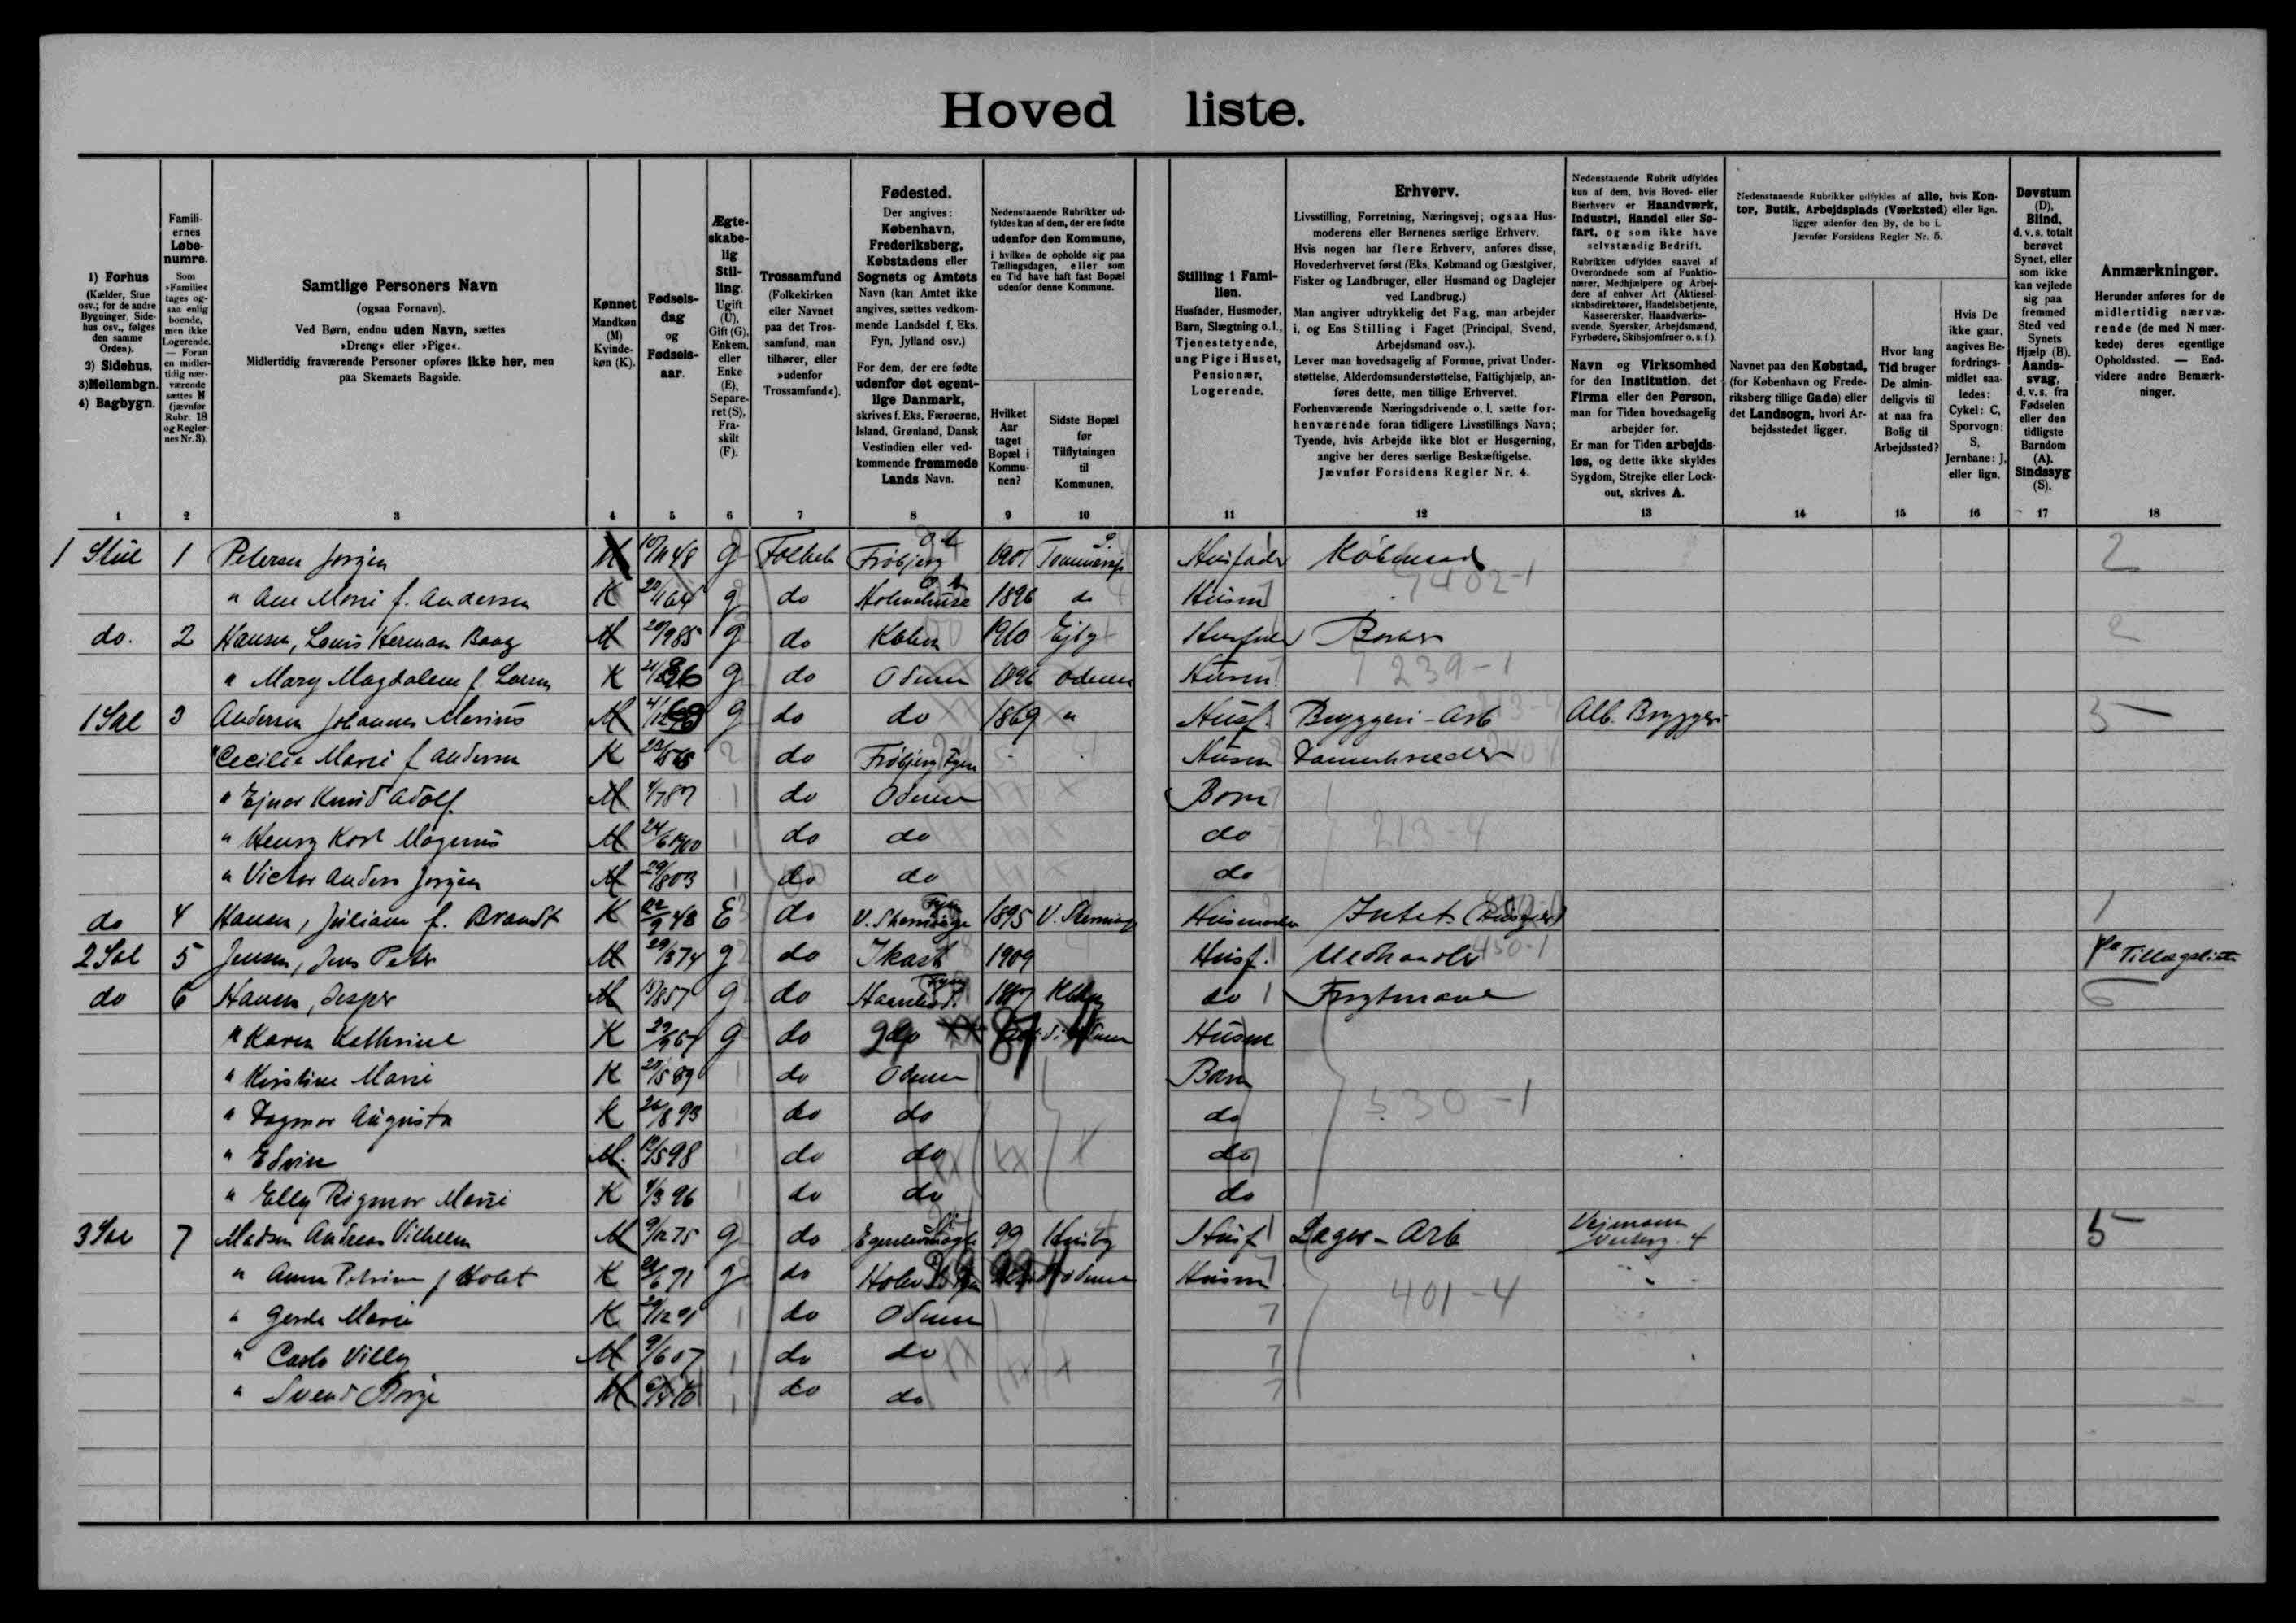 Hoved liste.
1) Forhus
(Kælder, Stue
osv.; for de andre
Bygninger, Side-
hus osv., følges
den samme
Orden).
2) Sidehus.
3) Mellembgn.
4) Bagbygn.
Famili-
ernes
Løbe-
numre.
Som
»Familie«
tages og-
saa enlig
boende,
men ikke
Logerende.
— Foran
en midler-
tidig nær-
værende
sættes N
(jævnfør
Rubr. 18
og Regler-
nes Nr. 3).
Samtlige Personers Navn
(ogsaa Fornavn).
Ved Børn, endnu uden Navn, sættes
»Dreng« eller »Pige«.
Midlertidig fraværende Personer opføres ikke her, men
paa Skemaets Bagside.
Kønnet
Mandkøn
(M)
Kvinde-
køn (K).
Fødsels-
dag
og
Fødsels-
aar.
Ægte-
skabe-
lig
Stil-
ling.
Ugift
(U),
Gift (G),
Enkem.
eller
Enke
(E),
Separe-
ret (S),
Fra-
skilt
(F).
Trossamfund
(Folkekirken
eller Navnet
paa det Tros-
samfund, man
tilhører, eller
»udenfor
Trossamfund«).
Fødested.
Der angives:
København,
Frederiksberg,
Købstadens eller
Sognets og Amtets
Navn (kan Amtet ikke
angives, sættes vedkom-
mende Landsdel f. Eks.
Fyn, Jylland osv.)
For dem, der ere fødte
udenfor det egent-
lige Danmark,
skrives f. Eks. Færøerne,
Island, Grønland, Dansk
Vestindien eller ved-
kommende fremmede
Lands Navn.
Nedenstaaende Rubrikker ud-
fyldes kun af dem, der ere fødte
udenfor den Kommune,
i hvilken de opholde sig paa
Tællingsdagen, eller som
en Tid have haft fast Bopæl
udenfor denne Kommune.
Hvilket
Aar
taget
Bopæl i
Kommu-
nen?
Sidste Bopæl
før
Tilflytningen
til
Kommunen.
Stilling i Fami-
lien.
Husfader, Husmoder,
Barn, Slægtning o. l.,
Tjenestetyende,
ung Pige i Huset,
Pensionær,
Logerende.
Erhverv.
Livsstilling, Forretning, Næringsvej; ogsaa Hus-
moderens eller Børnenes særlige Erhverv.
Hvis nogen har flere Erhverv, anføres disse,
Hovederhvervet først (Eks. Købmand og Gæstgiver,
Fisker og Landbruger, eller Husmand og Daglejer
ved Landbrug.)
Man angiver udtrykkelig det Fag, man arbejder
i, og Ens Stilling i Faget (Principal, Svend,
Arbejdsmand osv.).
Lever man hovedsagelig af Formue, privat Under-
støttelse, Alderdomsunderstøttelse, Fattighjælp, an-
føres dette, men tillige Erhvervet.
Forhenværende Næringsdrivende o. l. sætte for-
henværende foran tidligere Livsstillings Navn;
Tyende, hvis Arbejde ikke blot er Husgerning,
angive her deres særlige Beskæftigelse.
Jævnfør Forsidens Regler Nr. 4.
Nedenstaaende Rubrik udfyldes
kun af dem, hvis Hoved- eller
Bierhverv er Haandværk,
Industri, Handel eller Sø-
fart, og som ikke have
selvstændig Bedrift.
Rubrikken udfyldes saavel af
Overordnede som af Funktio-
nærer, Medhjælpere og Arbej-
dere af enhver Art (Aktiesel-
skabsdirektører, Handelsbetjente,
Kasserersker, Haandværks-
svende, Syersker, Arbejdsmænd,
Fyrbødere, Skibsjomfruer o. s. f.).
Navn og Virksomhed
for den Institution, det
Firma eller den Person,
man for Tiden hovedsagelig
arbejder for.
Er man for Tiden arbejds-
løs, og dette ikke skyldes
Sygdom, Strejke eller Lock-
out, skrives A.
Nedenstaaende Rubrikker udfyldes af alle, hvis Kon-
tor, Butik, Arbejdsplads (Værksted) eller lign.
ligger udenfor den By, de bo i.
Jævnfør Forsidens Regler Nr. 5.
Navnet paa den Købstad,
(for København og Frede-
riksberg tillige Gade) eller
det Landsogn, hvori Ar-
bejdsstedet ligger.
Hvor lang
Tid bruger
De almin-
deligvis til
at naa fra
Bolig til
Arbejdssted?
Hvis De
ikke gaar,
angives Be-
fordrings-
midlet saa-
ledes:
Cykel: C,
Sporvogn:
S,
Jernbane: J,
eller lign.
Døvstum
(D),
Blind,
d. v. s. totalt
berøvet
Synet, eller
som ikke
kan vejlede
sig paa
fremmed
Sted ved
Synets
Hjælp (B).
Aands-
svag,
d. v. s. fra
Fødselen
eller den
tidligste
Barndom
(A).
Sindssyg
(S).
Anmærkninger.
Herunder anføres for de
midlertidig nærvæ-
rende (de med N mær-
kede) deres egentlige
Opholdssted. — End-
videre andre Bemærk-
ninger.
1 2 3 4 5 6 7 8 9 10 11 12 13 14 15 16 17 18
1 Stue 1 Petersen Jørgen M 48 g Folkek Frøbjerg 1901 Tommerup Husfader Købmand 2
" Ane Marie f. Andersen K 64 g do Holmehuse 1896 do Husm 7402-1
do. 2 Hansen, Louis Herman Baag M 29/9 85 g do Kbhvn 1910 Ejby Husfader Barber 2
" Mary Magdalene f. K 86 g do Odense 1896 Odense Husm 239-1
1 Sal 3 Andersen Johannes Marius M g do do 1869 " Husf. Bryggeri-Arb 213-4 Alb. Bryggeri 5
" Cecilie Marie f Andersen K do Frøbjerg Fyen Husm
" Ejnar Knud Adolf M 87 1 do Odense Barn
" Henry Karl Magnus M 24/6 1900 1 do do do 213-4
" Victor Anders Jørgen M 29/8 03 1 do do do
do 4 Hansen, Juliane f. Brandt K 22/9 43 E do V. Skerninge Fyen 1895 V. Skerninge Husmoder Intet 1
2 Sal 5 Jensen, Jens Peter M 29/3 74 g do Ikast 1909 Husf. Uldhandler 450-1 Pa Tillægsliste
do 6 Hansen, Jesper M 57 g do Fyen do Fragtmand 6
" Karen Kathrine K g do do Husm
" Kirstine Marie K 89 1 do Odense Barn
" Dagmar Augusta K 26/8 93 do do do 530-1
" Edvin M. 98 1 do do do
" Elly Rigmor Marie K 96 1 do do do
3 Sal 7 Madsen Andreas Vilhelm M 75 g do 99 Husby Husf Lager-Arb 5
" Anna Petrine f Holst K 71 g do Odense Husm 401-4
" Gerda Marie K 1 do Odense 7
" Carlo Villy M 9/6 07 1 do do 7
" Svend Børge M 10 1 do do 7